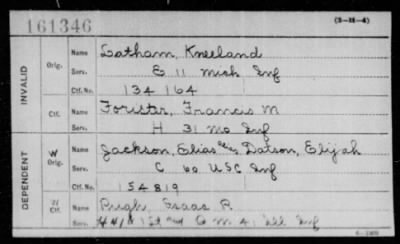 161346
(3-H-4)
INVALID
Orig.
Name Latham, Kneeland
Serv. E 11 Mich Inf
Ctf. No. 134 164
Ctf.
Name Forister, Francis M
Serv. H 31 Mo Inf
DEPENDENT
W Orig.
Name Jackson, Elias Datson, Elijah
Serv. C 60 USC Inf
Ctf. No. 154819
W Ctf.
Name Pugh, Isaac R.
Serv. G M 41 Ill Inf